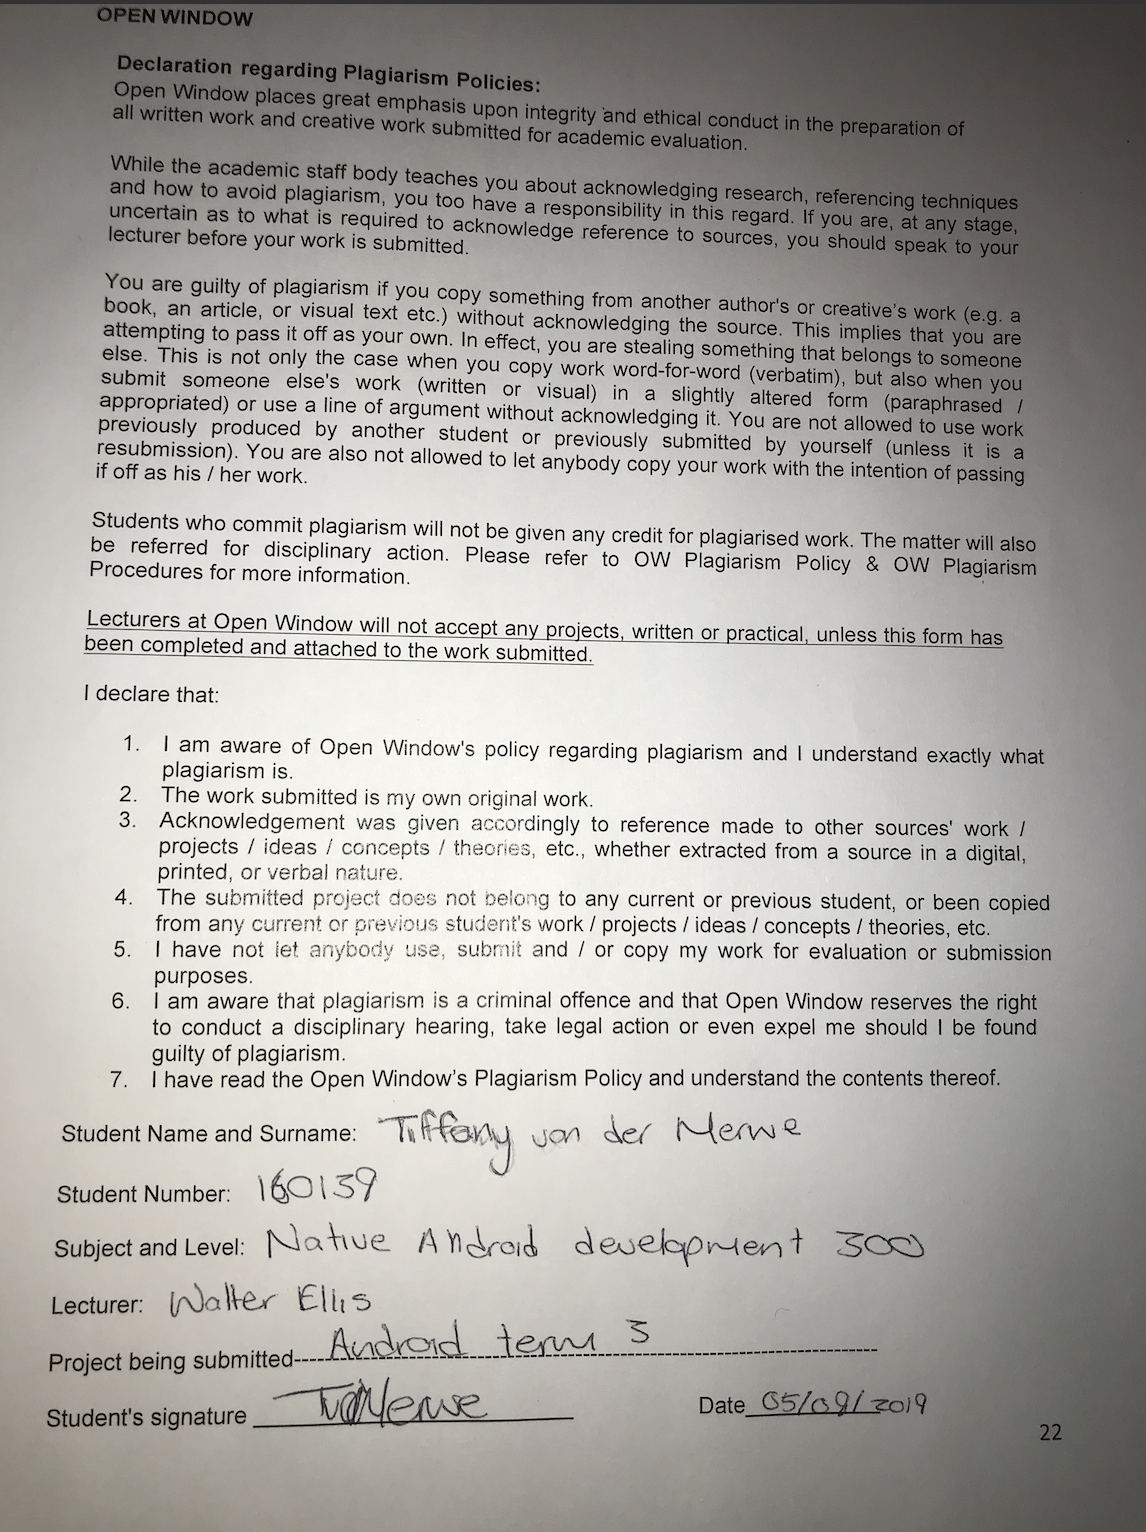 OPEN WINDOW
Declaration regarding Plagiarism Policies:
Open Window places great emphasis upon integrity and ethical conduct in the preparation of
all written work and creative work submitted for academic evaluation.
While the academic staff body teaches you about acknowledging research, referencing techniques
and how to avoid plagiarism, you too have a responsibility in this regard. If you are, at any stage,
uncertain as to what is required to acknowledge reference to sources, you should speak to your
lecturer before your work is submitted.
You are guilty of plagiarism if you copy something from another author's or creative's work (e.g. a
book, an article, or visual text etc.) without acknowledging the source. This implies that you are
attempting to pass it off as your own. In effect, you are stealing something that belongs to someone
else. This is not only the case when you copy work word-for-word (verbatim), but also when you
submit someone else's work (written or visual) in a slightly altered form (paraphrased /
appropriated) or use a line of argument without acknowledging it. You are not allowed to use work
previously produced by another student or previously submitted by yourself (unless it is a
resubmission). You are also not allowed to let anybody copy your work with the intention of passing
if off as his / her work.
Students who commit plagiarism will not be given any credit for plagiarised work. The matter will also
be referred for disciplinary action. Please refer to OW Plagiarism Policy & OW Plagiarism
Procedures for more information.
Lecturers at Open Window will not accept any projects, written or practical, unless this form has
been completed and attached to the work submitted.
I declare that:
1. I am aware of Open Window's policy regarding plagiarism and I understand exactly what
plagiarism is.
2. The work submitted is my own original work.
3. Acknowledgement was given accordingly to reference made to other sources' work /
projects / ideas / concepts / theories, etc., whether extracted from a source in a digital,
printed, or verbal nature.
4. The submitted project does not belong to any current or previous student, or been copied
from any current or previous student's work / projects / ideas / concepts / theories, etc.
5. I have not let anybody use, submit and / or copy my work for evaluation or submission
purposes.
6. I am aware that plagiarism is a criminal offence and that Open Window reserves the right
to conduct a disciplinary hearing, take legal action or even expel me should I be found
guilty of plagiarism.
7. I have read the Open Window's Plagiarism Policy and understand the contents thereof.
Student Name and Surname: Tiffany van der Merwe
Student Number: 160139
Subject and Level: Native Android development 300
Lecturer: Walter Ellis
Project being submitted Android term 3
Student's signature TvdMerwe Date 05/09/2019
22